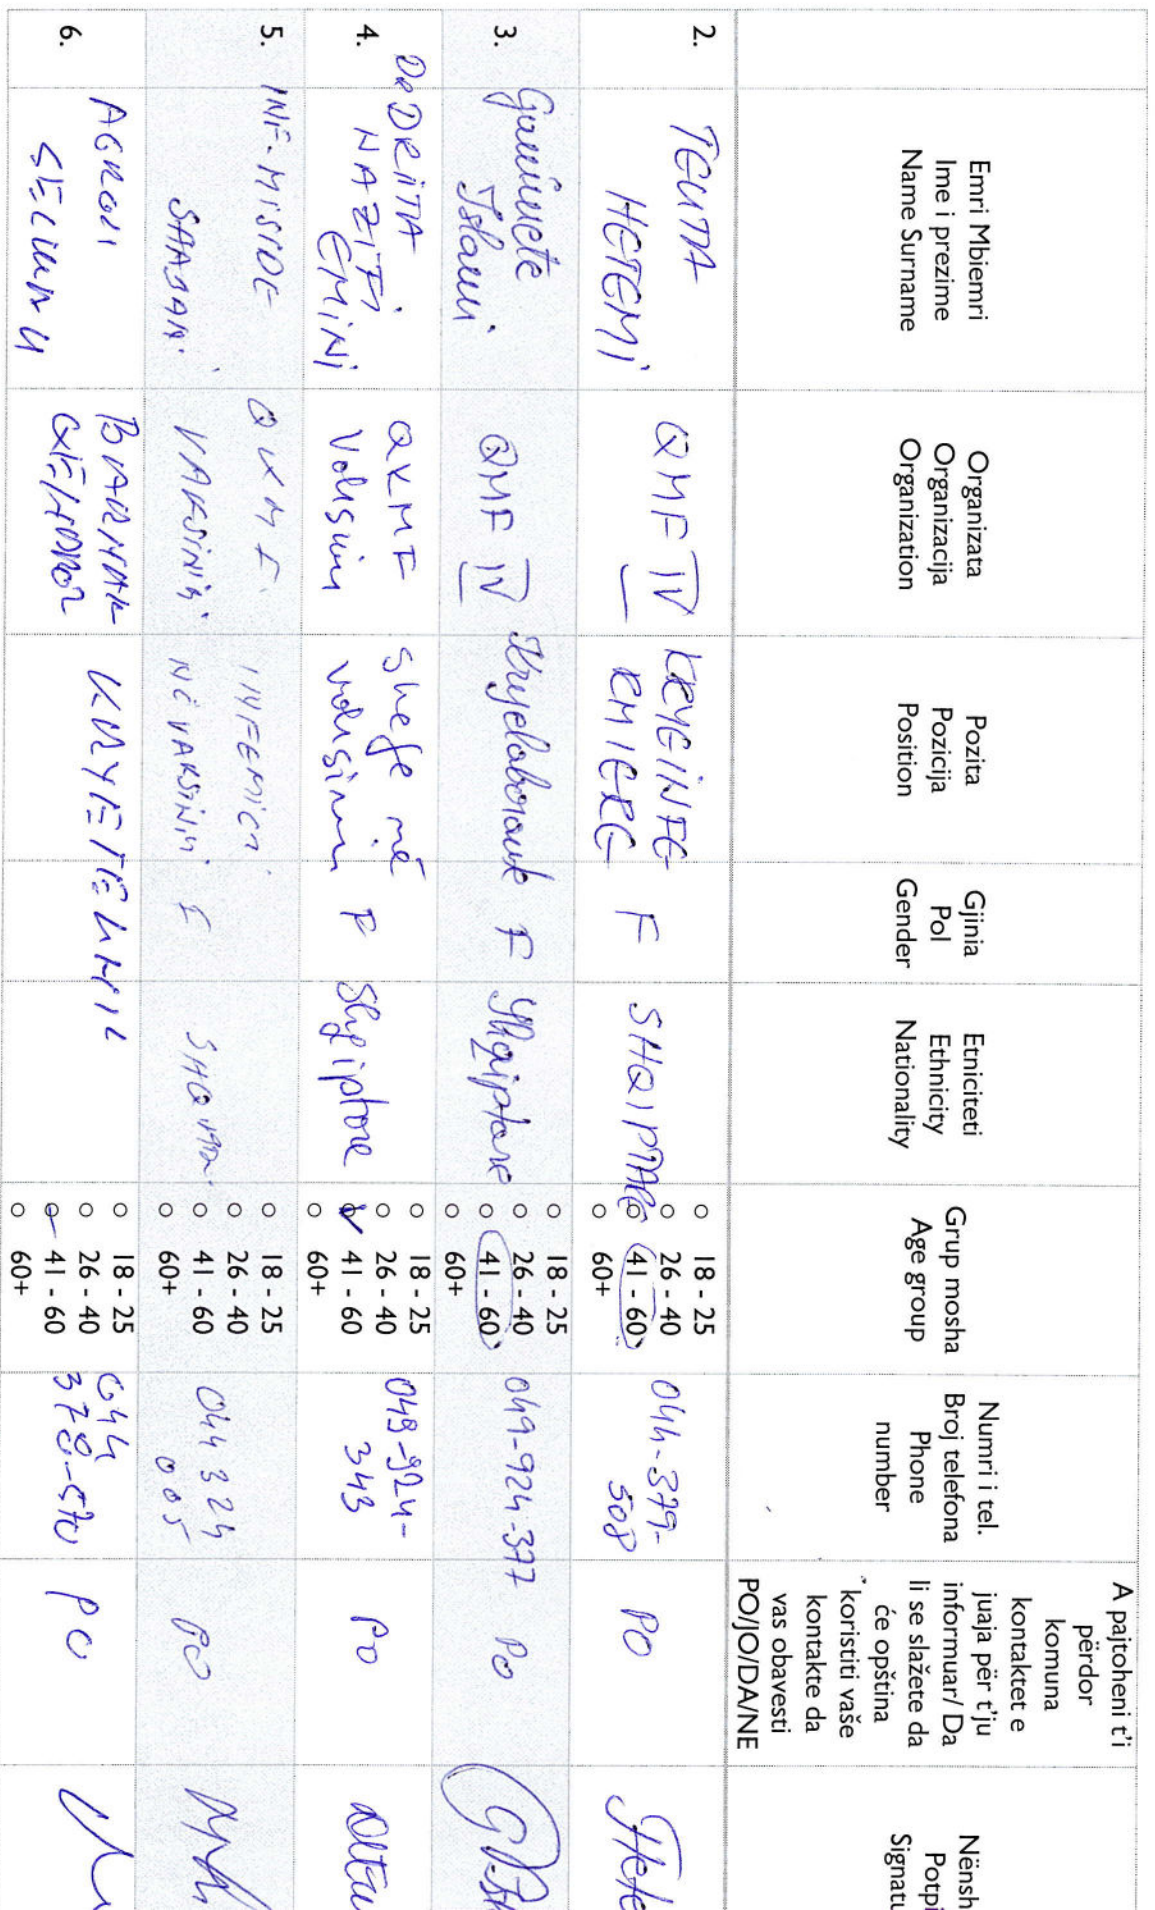 Emri Mbiemri
Ime i prezime
Name Surname
Organizata
Organizacija
Organization
Pozita
Pozicija
Position
Gjinia
Pol
Gender
Etniciteti
Ethnicity
Nationality
Grup mosha
Age group
Numri i tel.
Broj telefona
Phone
number
A pajtoheni t'i
përdor
komuna
kontaktet e
juaja për t'ju
informuar/ Da
li se slažete da
će opština
koristiti vaše
kontakte da
vas obavesti
PO/JO/DA/NE
Nënsh
Potpi
Signatu
2.
TEUTA
HETEMI
QMF IV
KRYEINFE-
RMIERE
F
SHQIPTARE
18 - 25
26 - 40
41 - 60
60+
044-379-
508
PO
3.
Islami
QMF IV
Kryelaborante
F
Shqiptare
18 - 25
26 - 40
41 - 60
60+
049-924-377
Po
4.
Dr DRITA
NAZIFI
EMINI
QKMF
Vaksinim
Shefe në
vaksinim
F
Shqiptare
18 - 25
26 - 40
41 - 60
60+
049-924-
343
Po
5.
INF.
QKMF
NË VAKSINIM
F
18 - 25
26 - 40
41 - 60
60+
044 324
005
PO
6.
AGRON
18 - 25
26 - 40
41 - 60
60+
044
378-570
PO